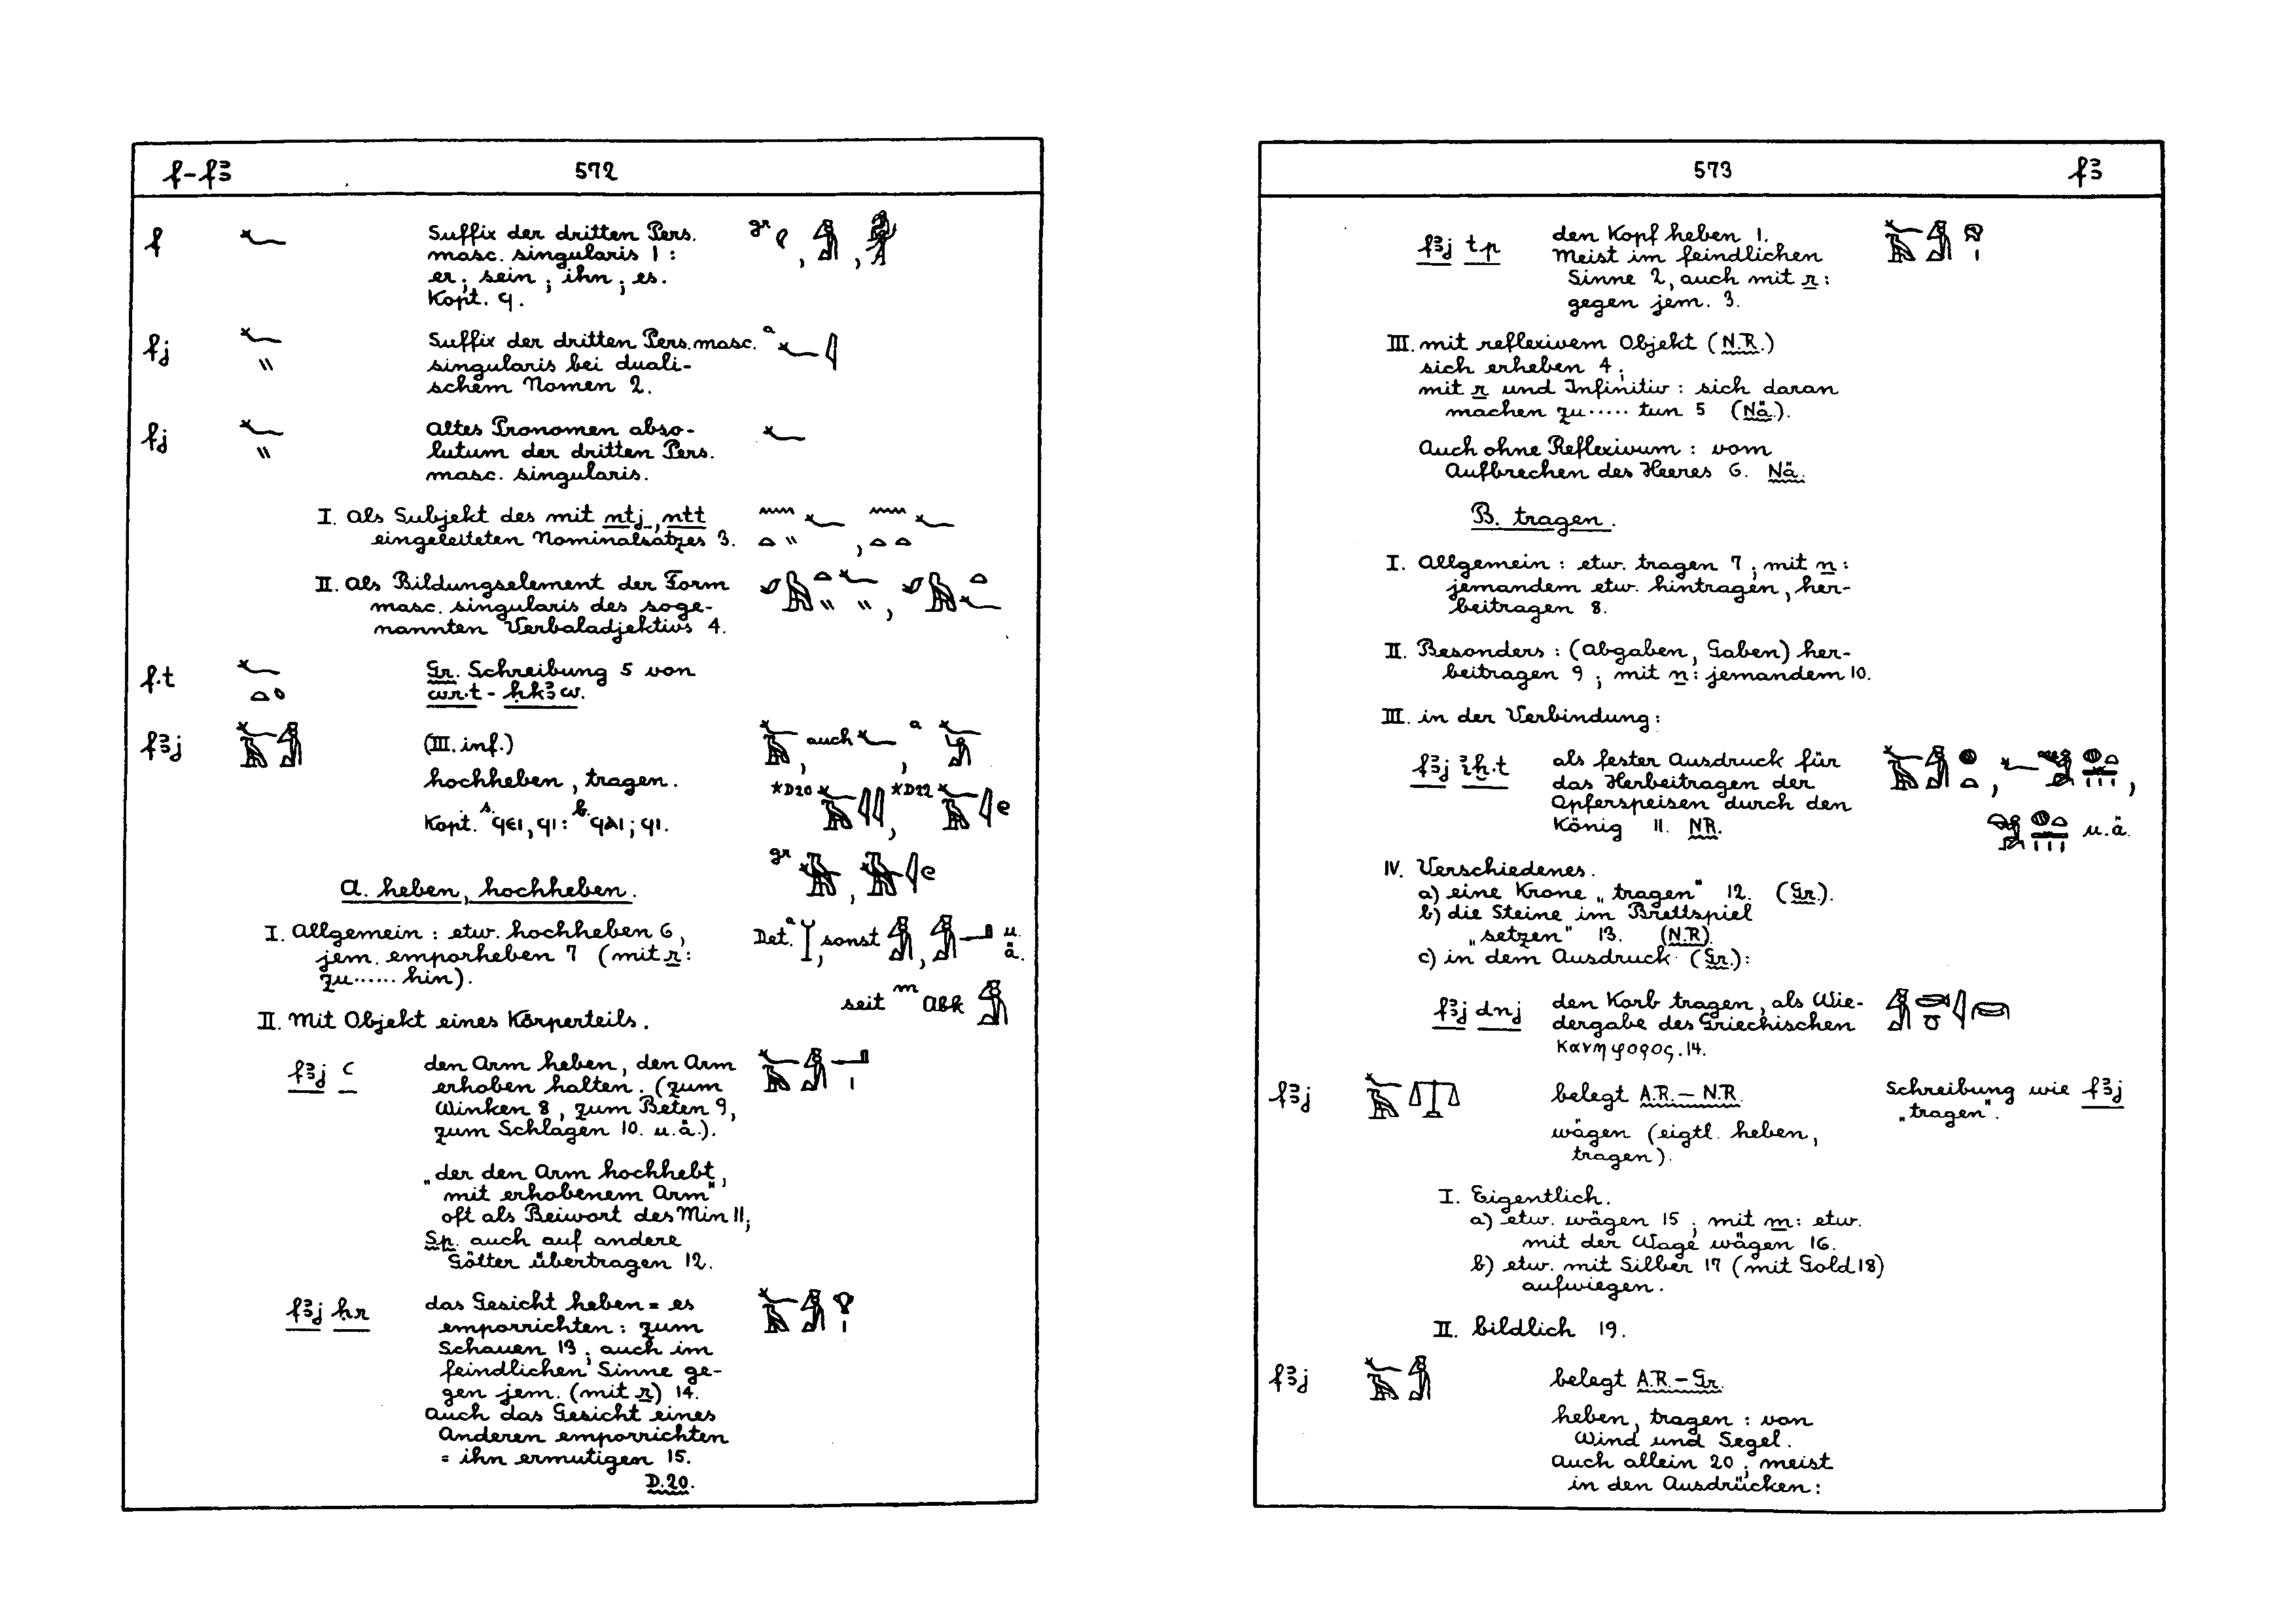 f-fꜣ 572
f
Suffix der dritten Pers.
masc. singularis 1 :
er ; sein ; ihn ; es.
Kopt. ϥ.
gr
fj
Suffix der dritten Pers. masc.
singularis bei duali-
schem Nomen 2.
a
fj
Altes Pronomen abso-
lutum der dritten Pers.
masc. singularis.
I. Als Subjekt des mit ntj, ntt
eingeleiteten Nominalsatzes 3.
II. Als Bildungselement der Form
masc. singularis des soge-
nannten Verbaladjektivs 4.
f.t
Gr. Schreibung 5 von
wr.t - ḥkꜣw.
fꜣj
(III. inf.)
auch
a
hochheben, tragen.
*D20 *D22
Kopt. s. ϥⲉⲓ, ϥⲓ : b. ϥⲁⲓ ; ϥⲓ.
gr
A. heben, hochheben.
I. Allgemein : etw. hochheben 6,
jem. emporheben 7 (mit r :
zu...... hin).
Det. a, sonst , u.
ä.
seit m Abk
II. Mit Objekt eines Körperteils.
fꜣj ꜥ
den Arm heben, den Arm
erhoben halten. (zum
Winken 8, zum Beten 9,
zum Schlagen 10. u.ä.).
„der den Arm hochhebt,
mit erhobenem Arm"
oft als Beiwort des Min 11;
Sp. auch auf andere
Götter übertragen 12.
fꜣj ḥr
das Gesicht heben = es
emporrichten : zum
Schauen 13 ; auch im
feindlichen Sinne ge-
gen jem. (mit r) 14.
Auch das Gesicht eines
Anderen emporrichten
= ihn ermutigen 15.
D.20.
573 fꜣ
fꜣj tp
den Kopf heben 1.
Meist im feindlichen
Sinne 2, auch mit r :
gegen jem. 3.
III. mit reflexivem Objekt (N.R.)
sich erheben 4 ;
mit r und Infinitiv : sich daran
machen zu..... tun 5 (Nä.).
Auch ohne Reflexivum : vom
Aufbrechen des Heeres 6. Nä.
B. tragen.
I. Allgemein : etw. tragen 7 ; mit n :
jemandem etw. hintragen, her-
beitragen 8.
II. Besonders : (Abgaben, Gaben) her-
beitragen 9 ; mit n : jemandem 10.
III. in der Verbindung :
fꜣj iḫ.t
als fester Ausdruck für
das Herbeitragen der
Opferspeisen durch den
König 11. NR.
u.ä.
IV. Verschiedenes.
a) eine Krone „tragen" 12. (Gr.).
b) die Steine im Brettspiel
„setzen" 13. (N.R)
c) in dem Ausdruck (Gr.) :
fꜣj dnj
den Korb tragen, als Wie-
dergabe des Griechischen
κανηφορος. 14.
fꜣj
belegt A.R. – N.R.
wägen (eigtl. heben,
tragen).
Schreibung wie fꜣj
„tragen".
I. Eigentlich.
a) etw. wägen 15 ; mit m : etw.
mit der Wage wägen 16.
b) etw. mit Silber 17 (mit Gold 18)
aufwiegen.
II. bildlich 19.
fꜣj
belegt A.R. – Gr.
heben, tragen : von
Wind und Segel.
Auch allein 20 ; meist
in den Ausdrücken :